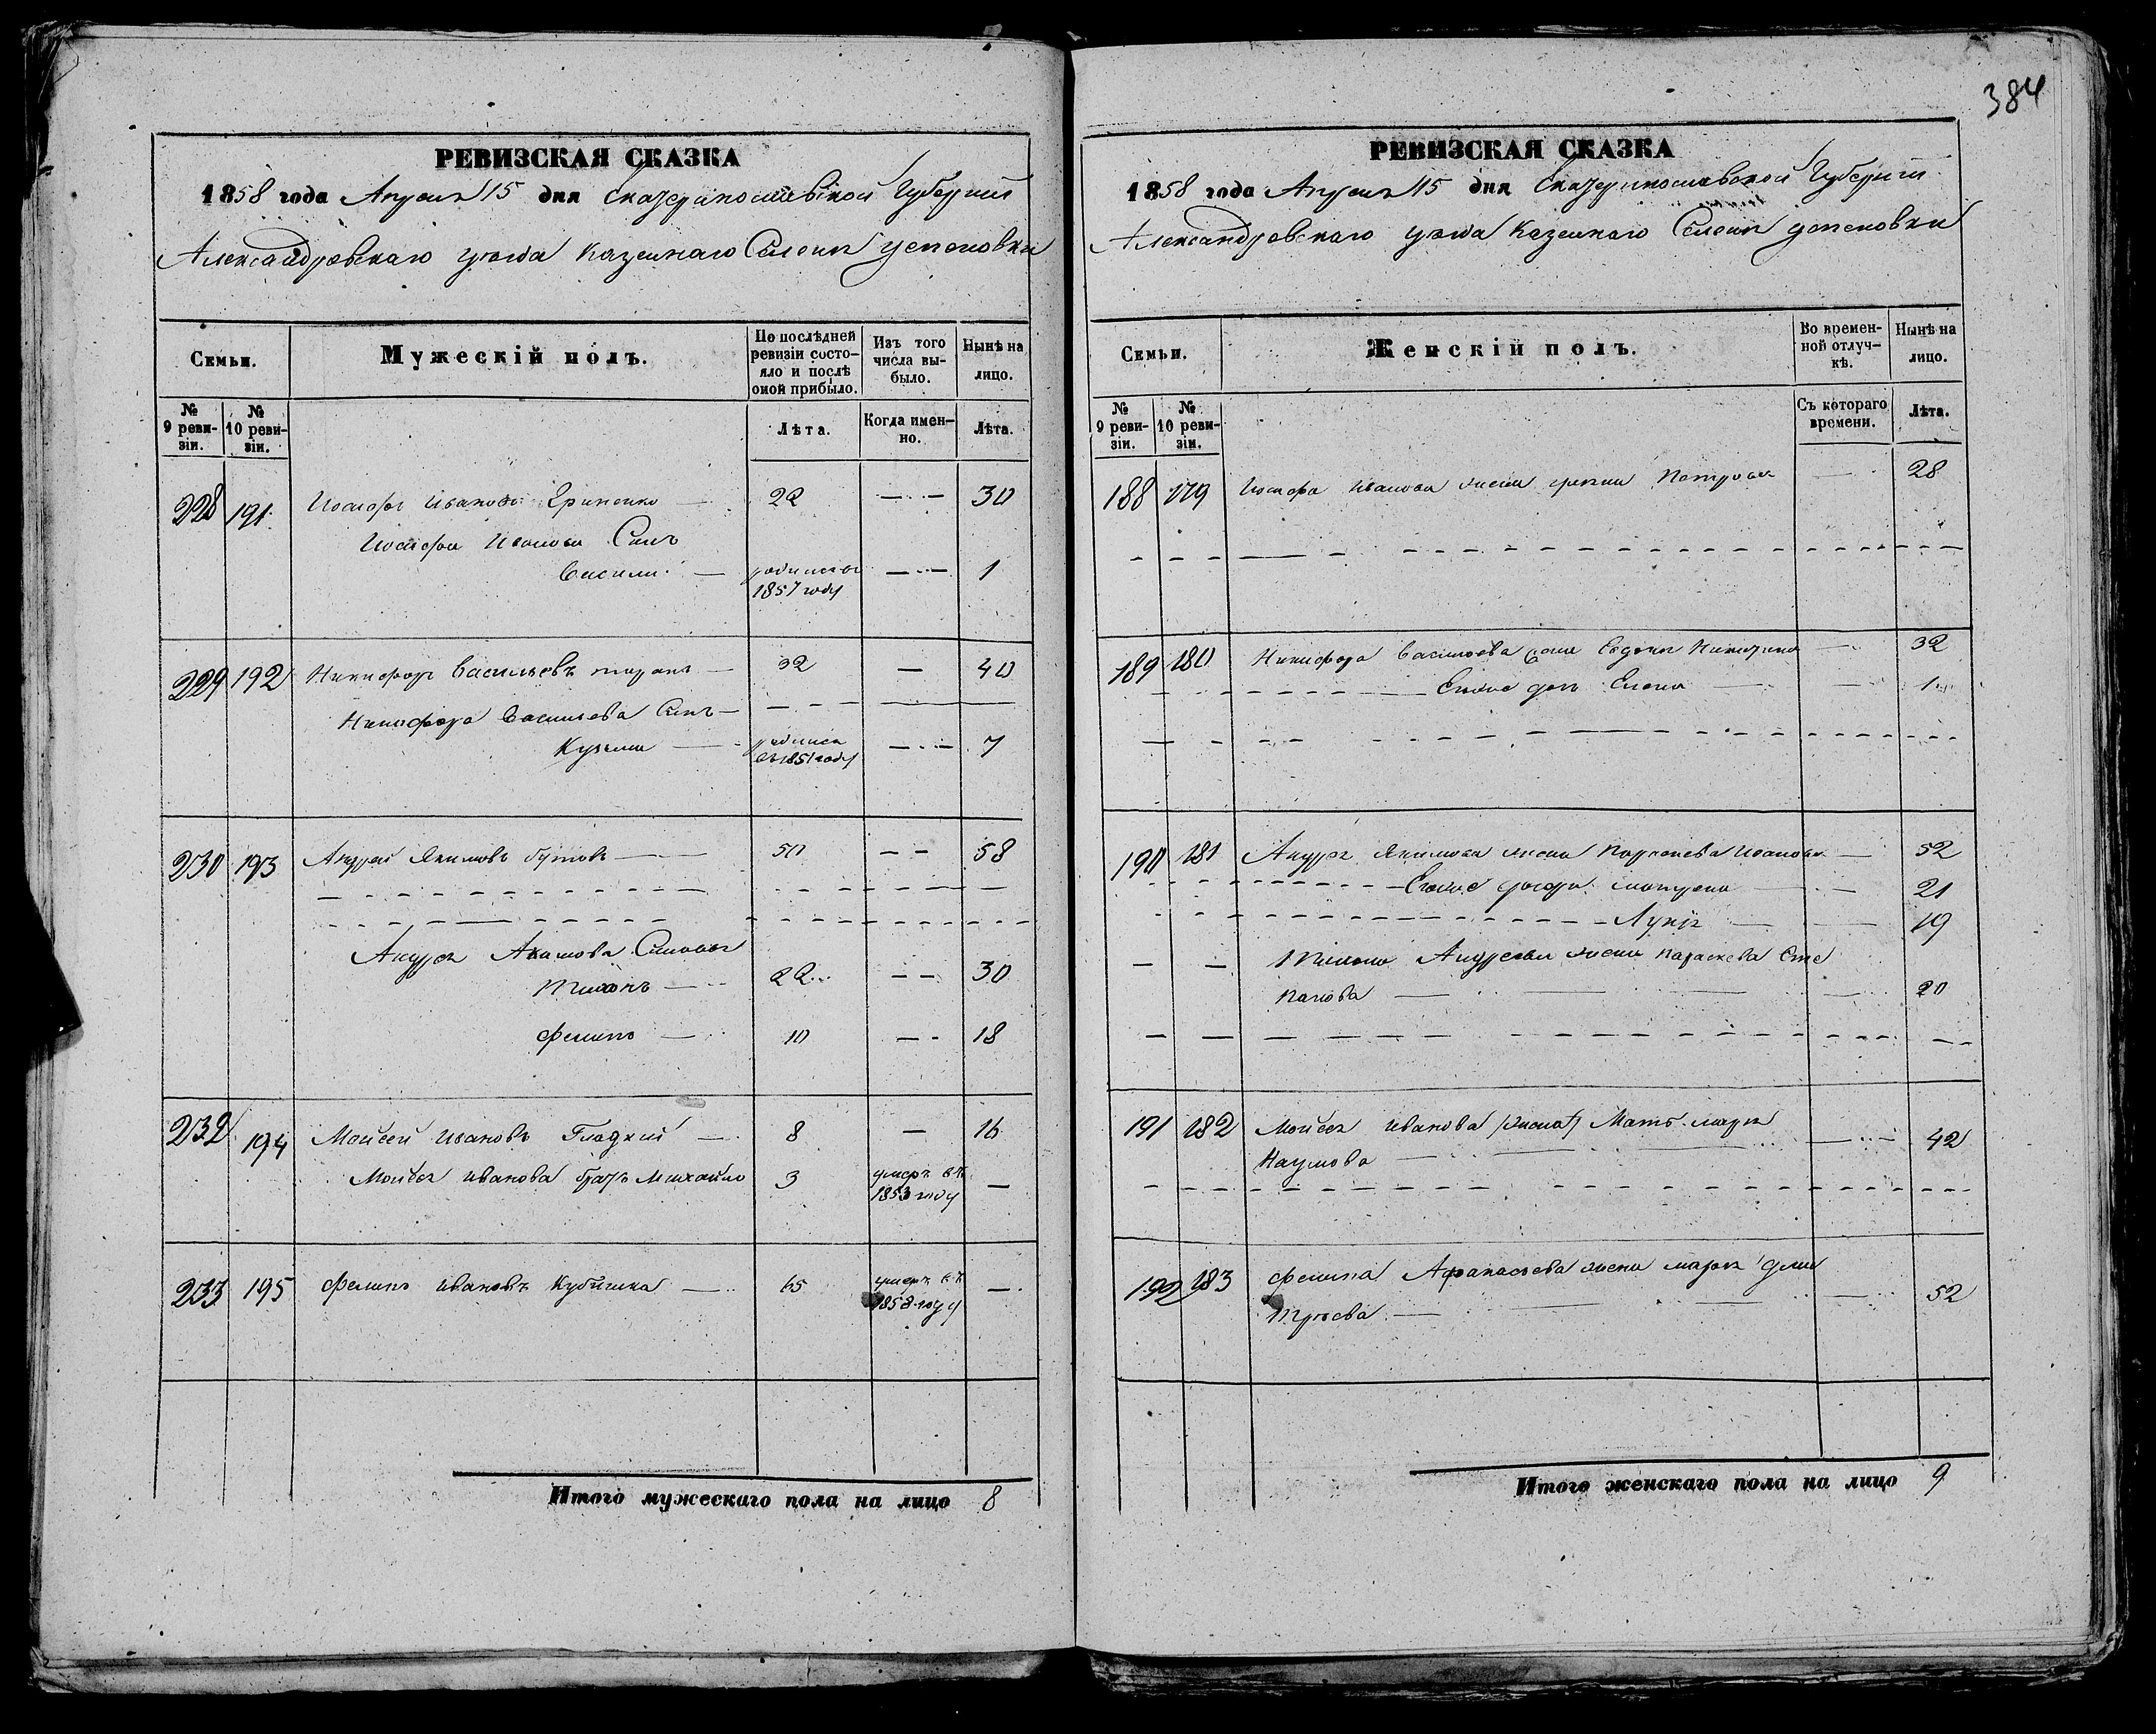 384
РЕВИЗСКАЯ СКАЗКА
1858 года Апреля 15 дня Екатеринославской Губернии
Александровскаго уезда Казеннаго Селения Успеновки
Семьи.
Мужескій полъ.
По послѣдней ревизіи состояло и послѣ оной прибыло.
Изъ того числа выбыло.
Нынѣ на лицо.
№ 9 ревизіи.
№ 10 ревизіи.
Лѣта.
Когда именно.
Лѣта.
228 191 Иосифъ Ивановъ 22 — 30
Иосифа Иванова Сынъ
Василий — родился 1857 году — 1
229 192 Никифоръ Васильевъ таранъ — 32 — 40
Никифора Васильева Сынъ —
Кузьма — родился въ 1851 году — 7
230 193 Андрей Якимовъ бутовъ — 50 — — 58
Андрея Акимова Сыновья
Тихонъ — 22 — — 30
Филипъ — 10 — — 18
232 194 Мойсей Ивановъ Гладкий — 8 — 16
Мойсея Иванова братъ Михайло 3 умеръ въ 1853 году —
233 195 Филипъ Ивановъ Кубишка — 65 умеръ въ 1858 году —
Итого мужескаго пола на лицо 8
РЕВИЗСКАЯ СКАЗКА
1858 года Апреля 15 дня Екатеринославской Губернии
Александровскаго уезда Казеннаго Селения успеновки
Семьи.
Женскій полъ.
Во временной отлучкѣ.
Нынѣ на лицо.
№ 9 ревизіи.
№ 10 ревизіи.
Съ котораго времени.
Лѣта.
188 179 Иосифа Иванова жена Петрова — 28
189 180 Никифора Васильева жена Евдокия — 32
Елена — 1
190 181 Андрея Якимова жена Параскева Иванова — 52
Матрена — 21
Лукия — 19
Тихона Андреева жена Параскева Сте
панова — 20
191 182 Мойсея Иванова Мать марья
Наумова — 42
192 183 Филипа Афанасьева жена марья Дми
триева — 52
Итого женскаго пола на лицо 9